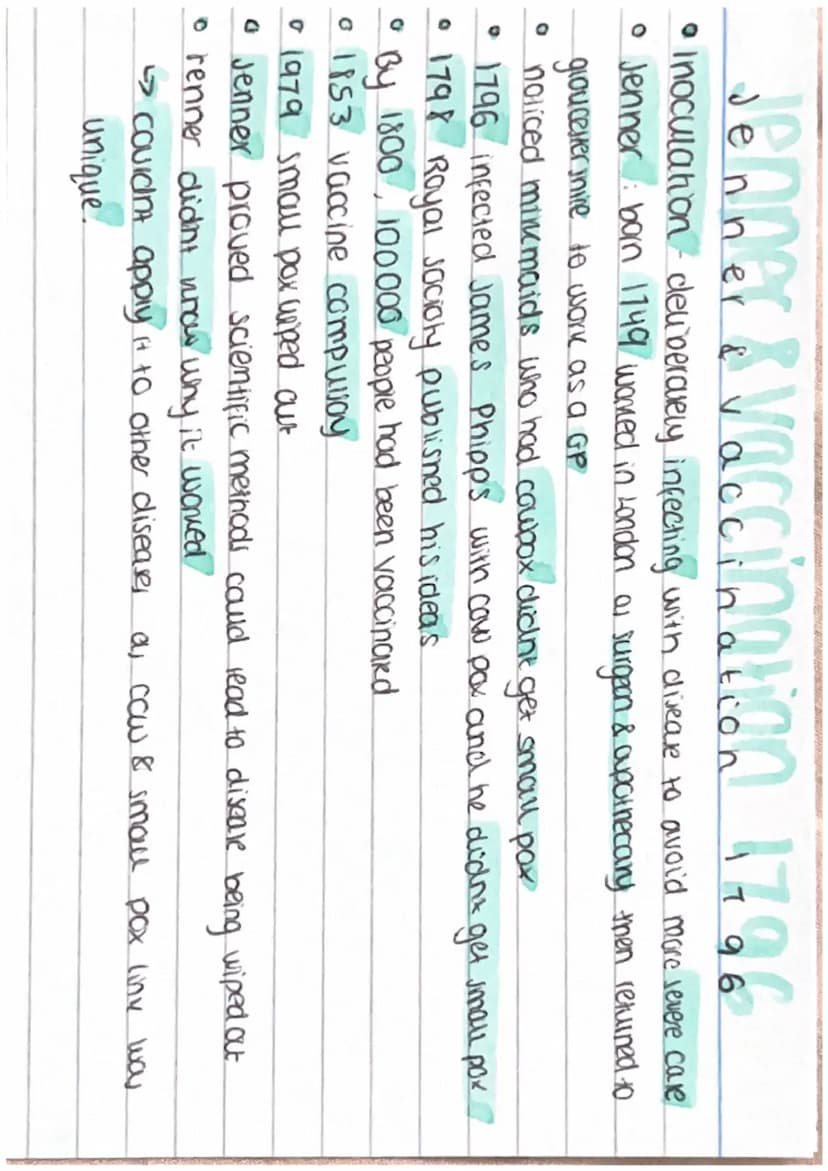 Jenner & Vaccination 1796
• inoculation - deliberately infecting with disease to avoid more severe case
• Jenner: born 1749 worked in London as surgeon & apothecary then returned to
gloucestershire to work as a GP
• noticed milkmaids who had cowpox didnt get small pox
• 1796 infected James Phipps with cow pox and he didnt get small pox
• 1798 Royal society published his ideas
• By 1800, 100000 people had been vaccinated
• 1853 vaccine compulsory
• 1979 small pox wiped out
• Jenner proved scientific methods could lead to disease being wiped out
• renner didnt know why it worked
↳ couldnt apply it to other diseases as cow & small pox link was
unique.